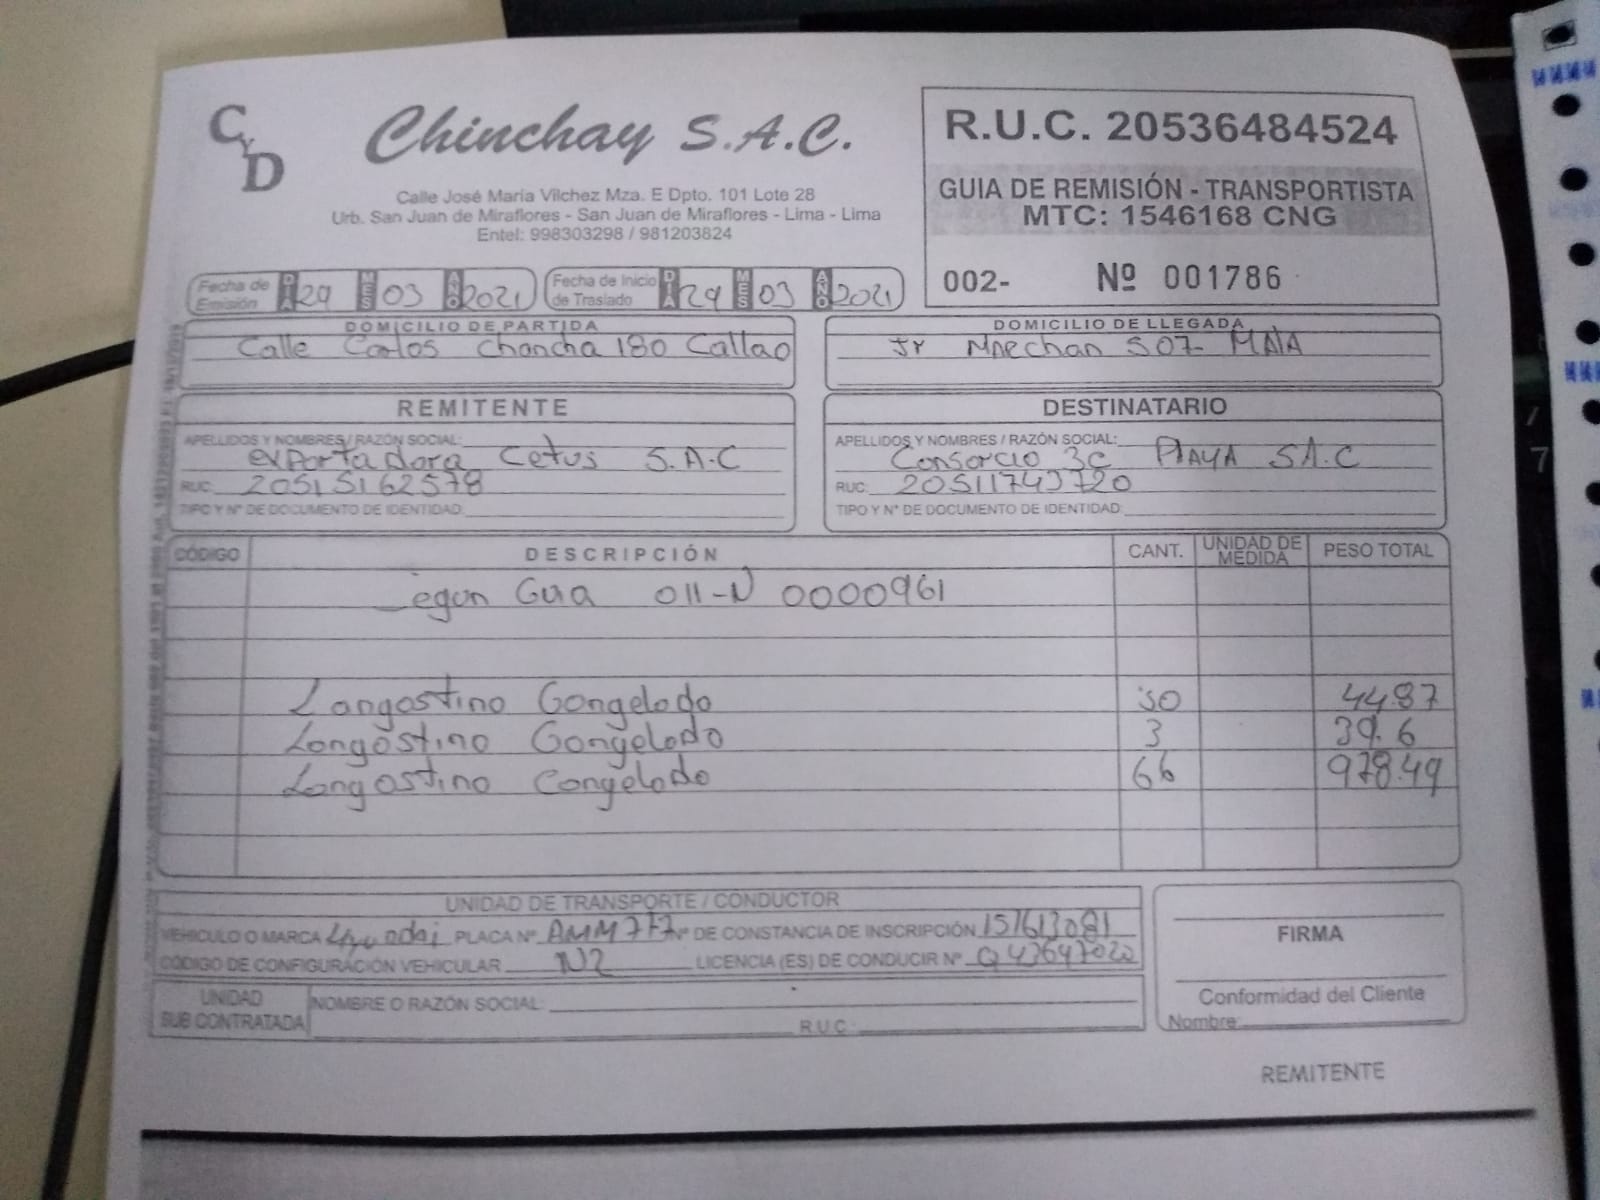 C Y D
Chinchay S.A.C.
Calle José María Vilchez Mza. E Dpto. 101 Lote 28
Urb. San Juan de Miraflores - San Juan de Miraflores - Lima - Lima
Entel: 998303298 / 981203824
R.U.C. 20536484524
GUIA DE REMISIÓN - TRANSPORTISTA
MTC: 1546168 CNG
002- Nº 001786
Fecha de Emisión DIA 29 MES 03 AÑO 2021 Fecha de Inicio de Traslado DIA 29 MES 03 AÑO 2021
DOMICILIO DE PARTIDA
Calle Carlos Chancha 180 Callao
DOMICILIO DE LLEGADA
Jr 507- MALA
REMITENTE
APELLIDOS Y NOMBRES / RAZÓN SOCIAL:
exportadora Cetus S.A.C
RUC: 20515162578
TIPO Y N° DE DOCUMENTO DE IDENTIDAD:
DESTINATARIO
APELLIDOS Y NOMBRES / RAZÓN SOCIAL:
Consorcio 3c PLAYA SA.C
RUC: 20511743720
TIPO Y N° DE DOCUMENTO DE IDENTIDAD:
CÓDIGO DESCRIPCIÓN CANT. UNIDAD DE MEDIDA PESO TOTAL
Segun Guia 011-N 0000961
Langostino Congelado 30 44.87
Langostino Congelado 3 39.6
Langostino Congelado 66 978.49
UNIDAD DE TRANSPORTE / CONDUCTOR
VEHICULO O MARCA Hyundai PLACA Nº AMM777 Nº DE CONSTANCIA DE INSCRIPCIÓN 151613081
CÓDIGO DE CONFIGURACIÓN VEHICULAR N2 LICENCIA (ES) DE CONDUCIR Nº Q43647020
UNIDAD SUB CONTRATADA NOMBRE O RAZÓN SOCIAL:
R.U.C.:
FIRMA
Conformidad del Cliente
Nombre:
REMITENTE